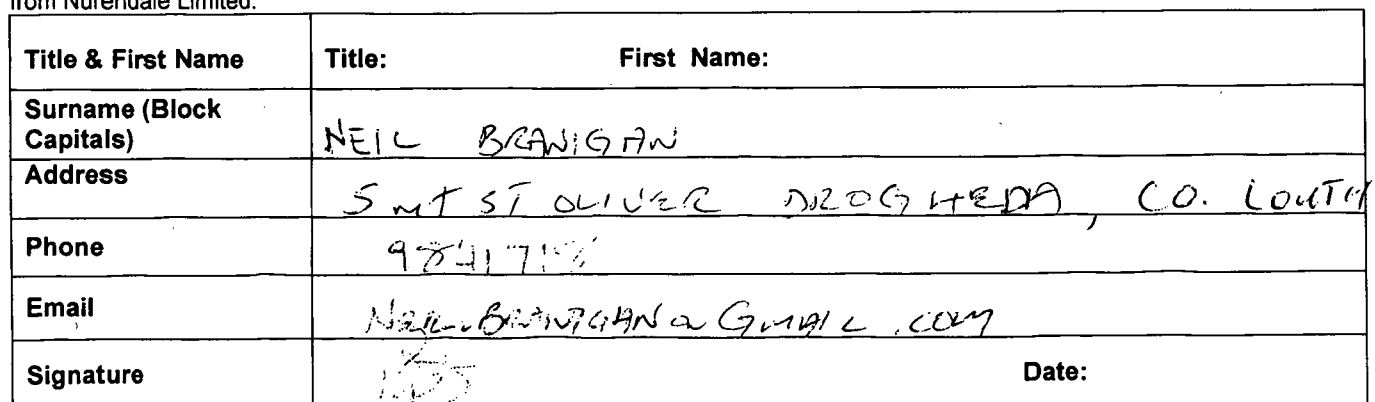 from Nurendale Limited.
Title & First Name Title: First Name:
Surname (Block Capitals) NEIL BRANIGAN
Address 5 MT ST OLIVER DROGHEDA, CO. LOUTH
Phone
Email NEIL.BRANIGAN@GMAIL.COM
Signature Date: